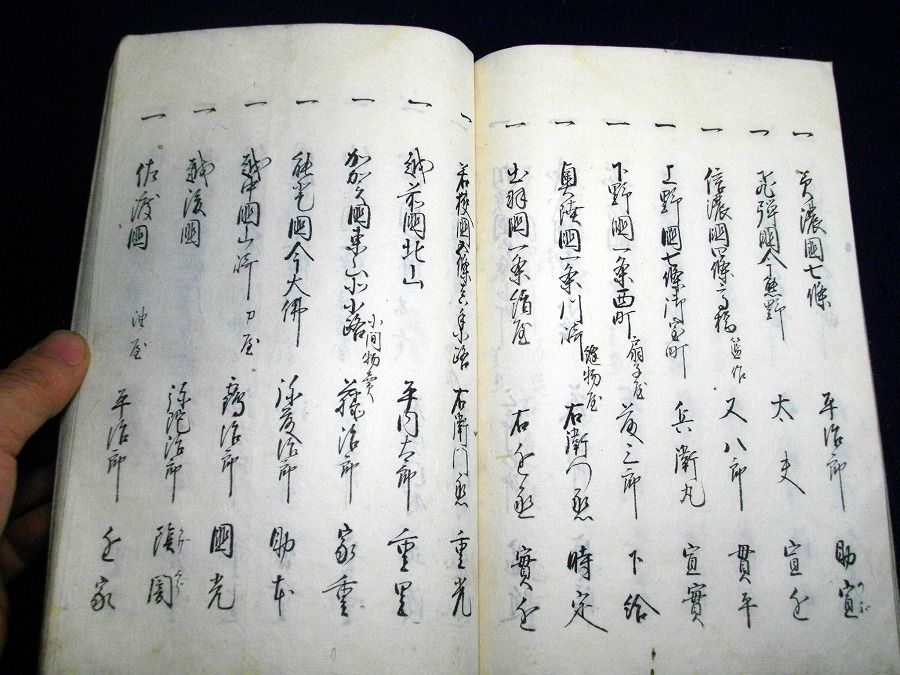 一 美濃國七條 平治郎 助宣
一 飛弾國今熊野 太夫 宣近
一 信濃國四條高橋 又八郎 貫平
一 上野國七條御室町 兵衛丸 宣實
一 下野國一条西町 扇子屋 三郎 下給
一 奥陸國一条川崎 物屋 右衛門烝 時定
一 出羽國一条 屋 右近烝 實近
一 若狭國 条 路 右衛門烝 重光
一 越前國北山 平内太郎 重里
一 加賀國東山小路 小間物賣 藤治郎 家重
一 能登國今大佛 治郎 助本
一 越中國山崎 刀屋 鶴治郎 國光
一 越後國 治郎
一 佐渡國 油屋 平治郎 近家